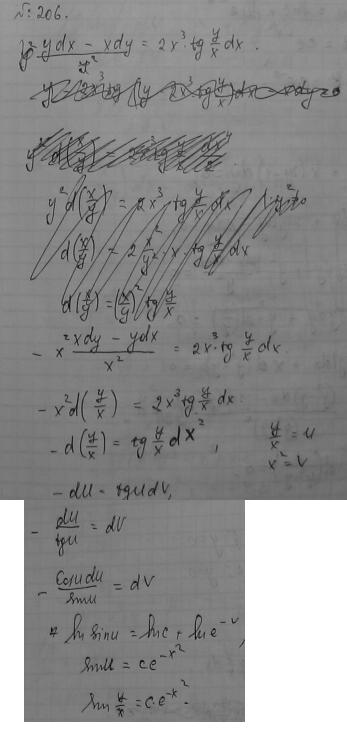 № 206.
y dx - x dy = 2x³ · tg y/x dx.
y² d(x/y) = 2x³ · tg y/x dx
d(x/y) = 2 x²/y² · x · tg y/x dx
d(x/y) = (x/y)² tg y/x
- x² (x dy - y dx)/x² = 2x³ · tg y/x dx
- x² d(y/x) = 2x³ tg y/x dx
- d(y/x) = tg y/x dx², y/x = u
x² = v
- du = tg u dv,
- du/tg u = dv
- cos u du/sin u = dv
ln sin u = ln c + ln e^-v,
sin u = ce^-x²
sin y/x = c·e^-x².